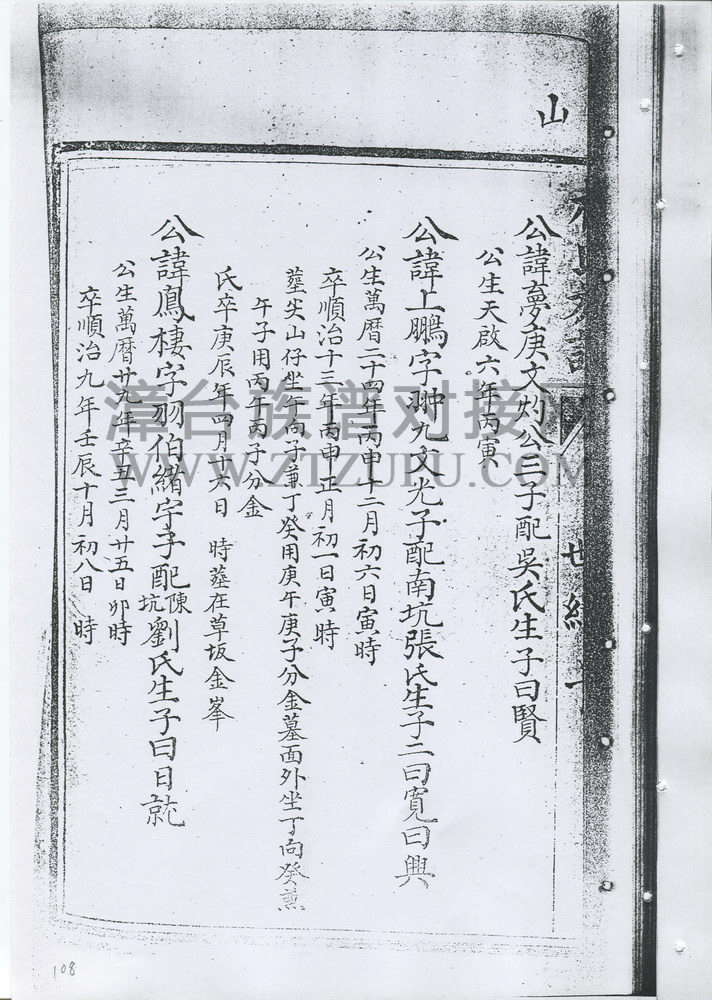 山
世紀
公諱夢庚文灼公三子配吳氏生子曰賢
公生天啟六年丙寅
公諱上鵬字翀九文尤子配南坑張氏生子二曰寬曰興
公生萬曆二十四年丙申十二月初六日寅時
卒順治十三年丙申正月初一日寅時
塟尖山仔坐午向子兼丁癸用庚午庚子分金墓面外坐丁向癸兼
午子用丙午丙子分金
氏卒庚辰年四月十六日 時塟在草坂金峯
公諱鳳棲字羽伯緒宇子配陳坑劉氏生子曰日就
公生萬曆廿九年辛丑三月廿五日卯時
卒順治九年壬辰十月初八日 時
漳台族谱对接
WWW.ZTZUPU.COM
108